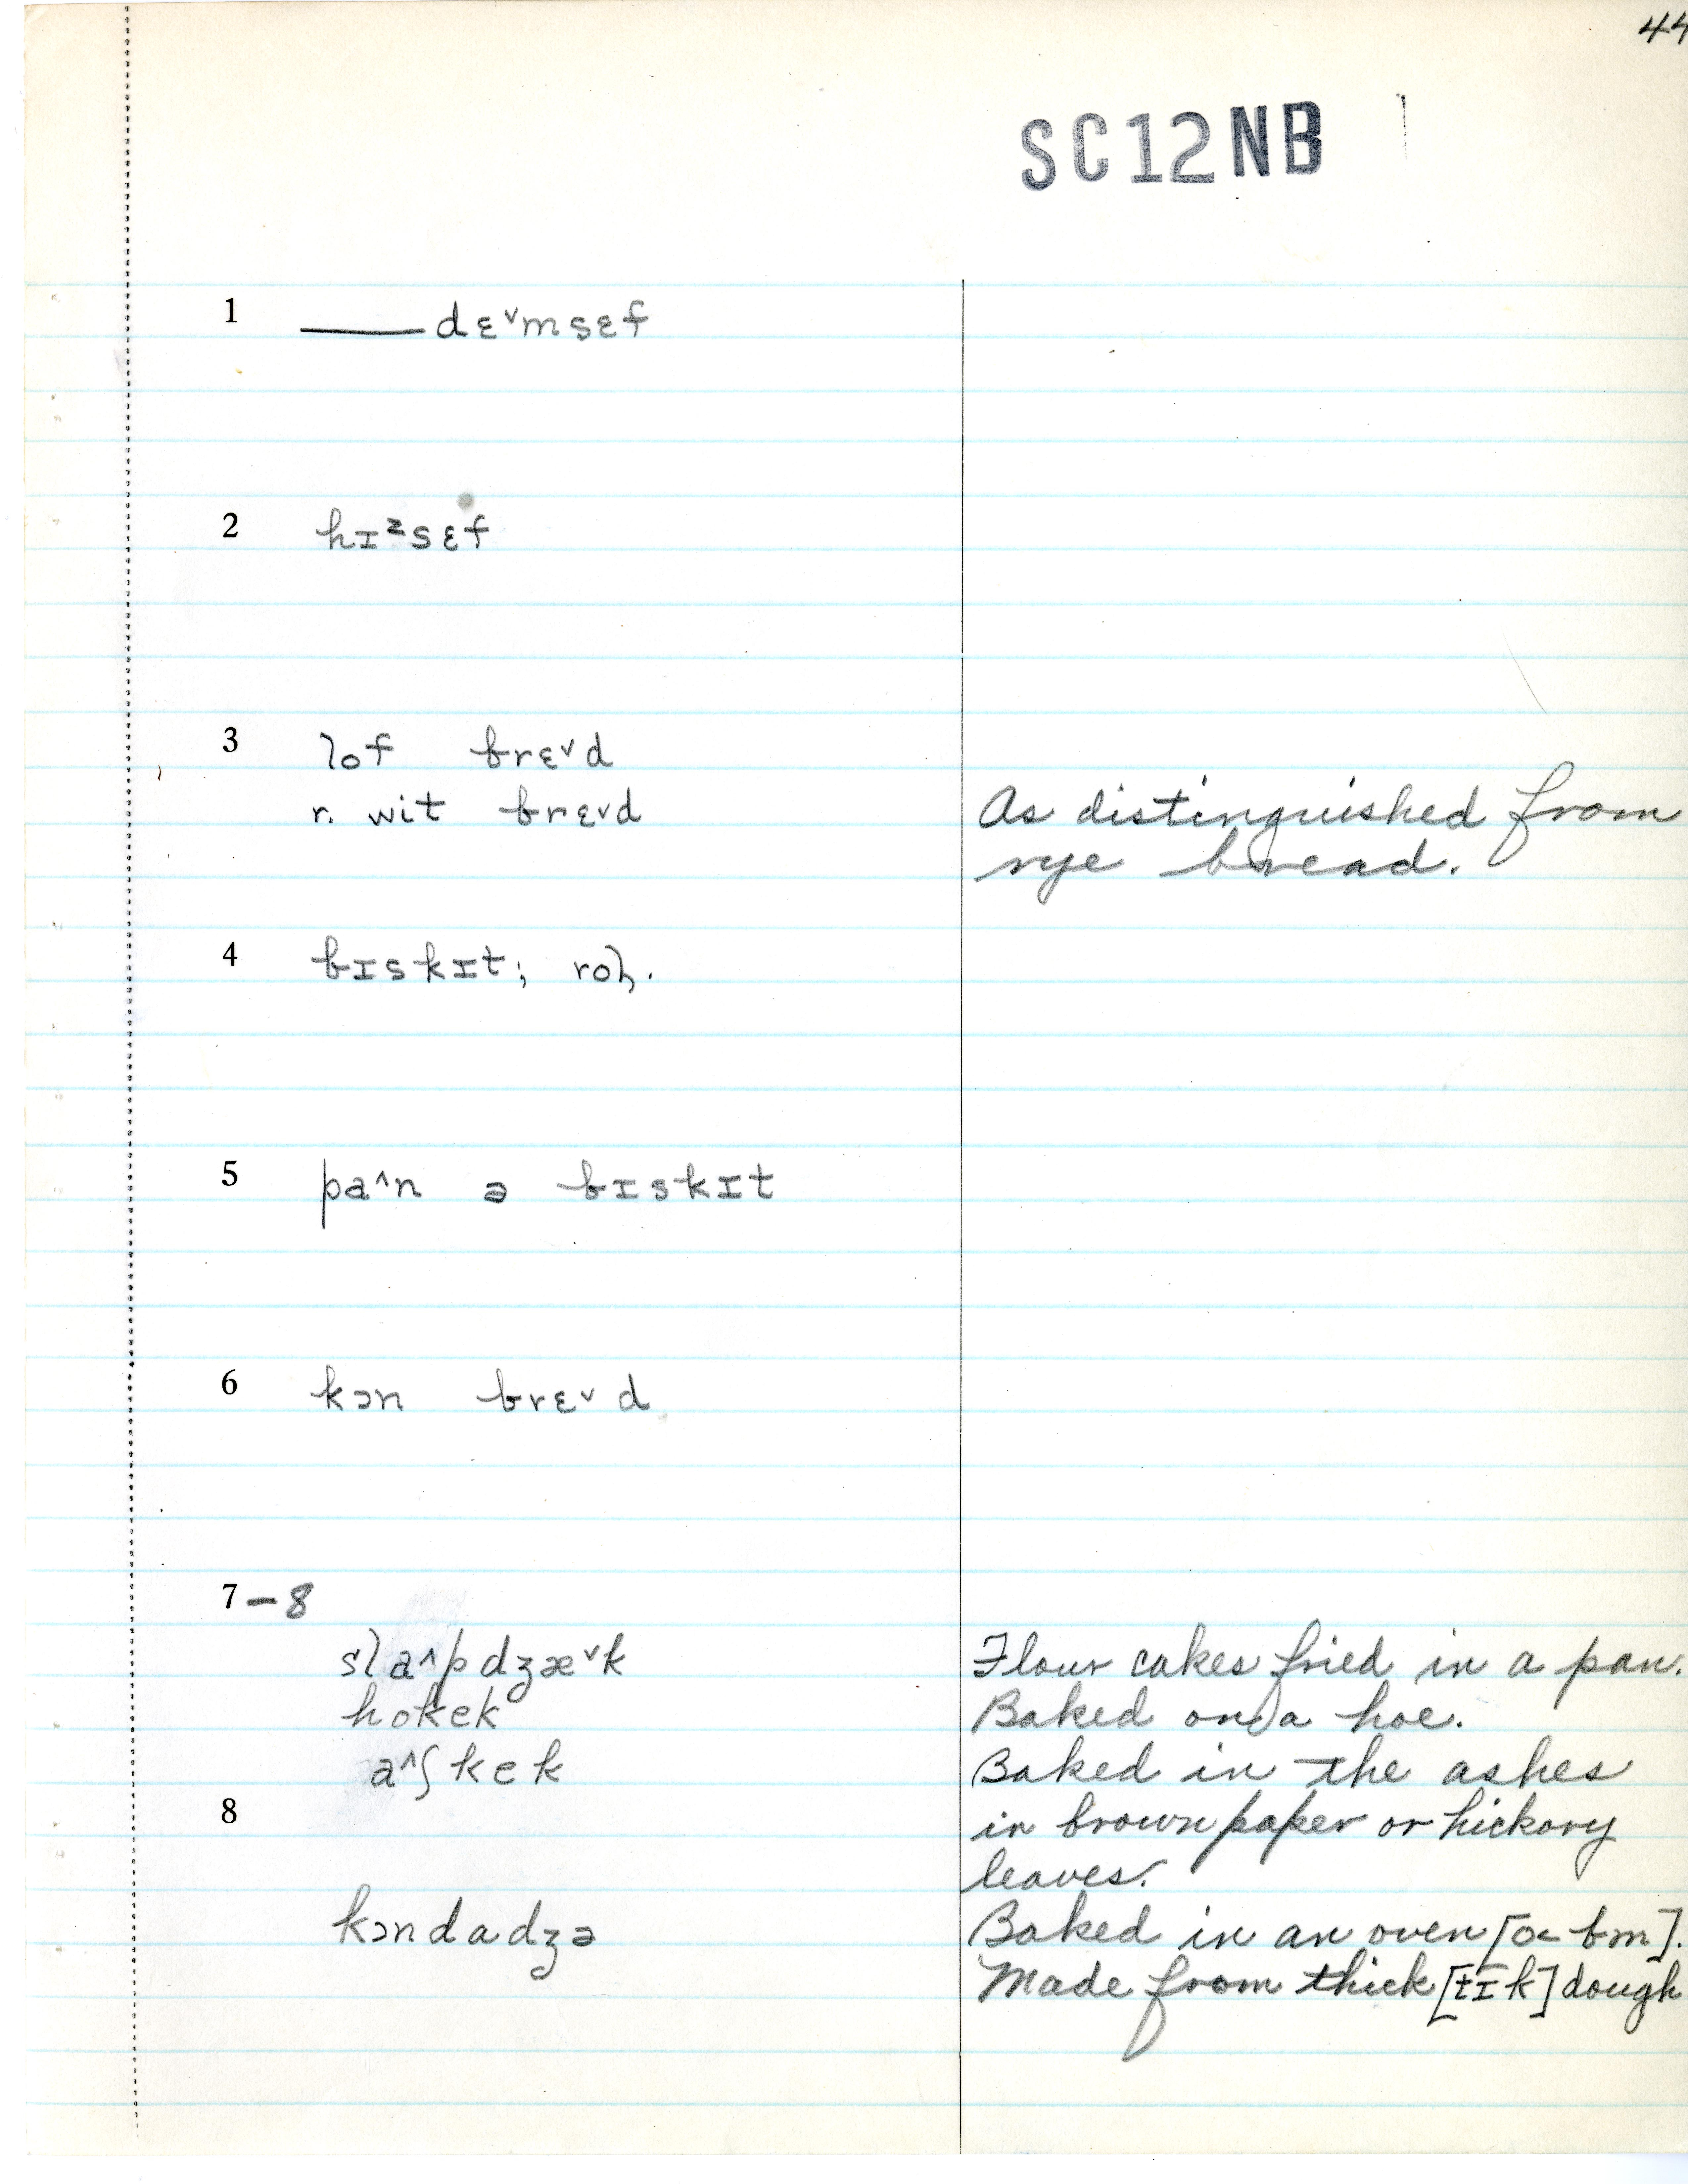 44
SC12NB
1 ——— dɛ˅msɛf
2 hɪᶻsɛf
3 lof brɛ˅d
r. wit brɛ˅d As distinguished from
rye bread.
4 bɪskɪt; rol.
5 pa˄n ə bɪskɪt
6 kɔn brɛ˅d
7–8
sla˄pdʒæ˅k Flour cakes fried in a pan.
hokek Baked on a hoe.
a˄ʃkek Baked in the ashes
8 in brown paper or hickory
leaves.
kɔndadʒə Baked in an oven
Made from thick [tɪk] dough